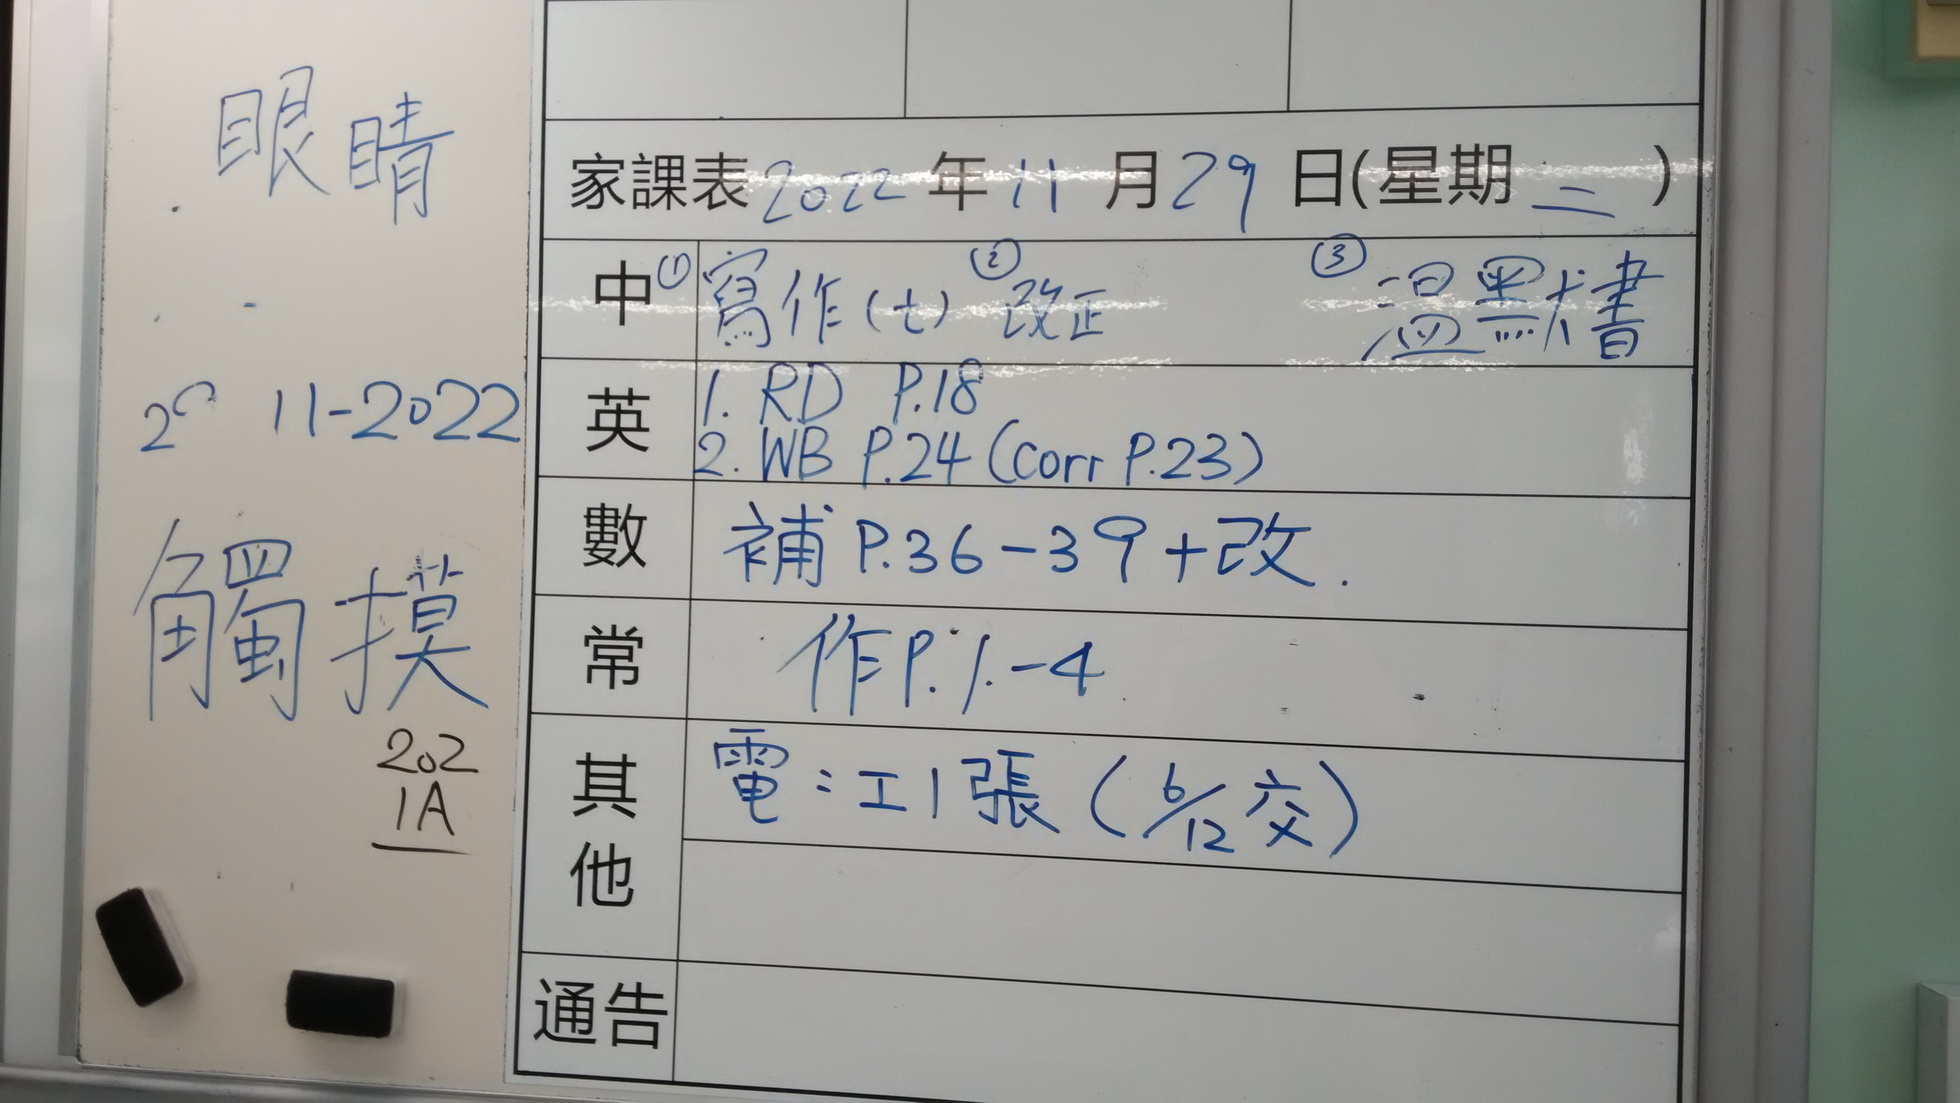 眼睛
2 11-2022
觸摸
202
1A
家課表2022年11月29日(星期二)
中 ① 寫作(七) ② 改正 ③ 溫默書
英 1. RD P.18
2. WB P.24 (corr P.23)
數 補 P.36-39+改.
常 作P.1.-4
其他 電:工1張(6/12交)
通告